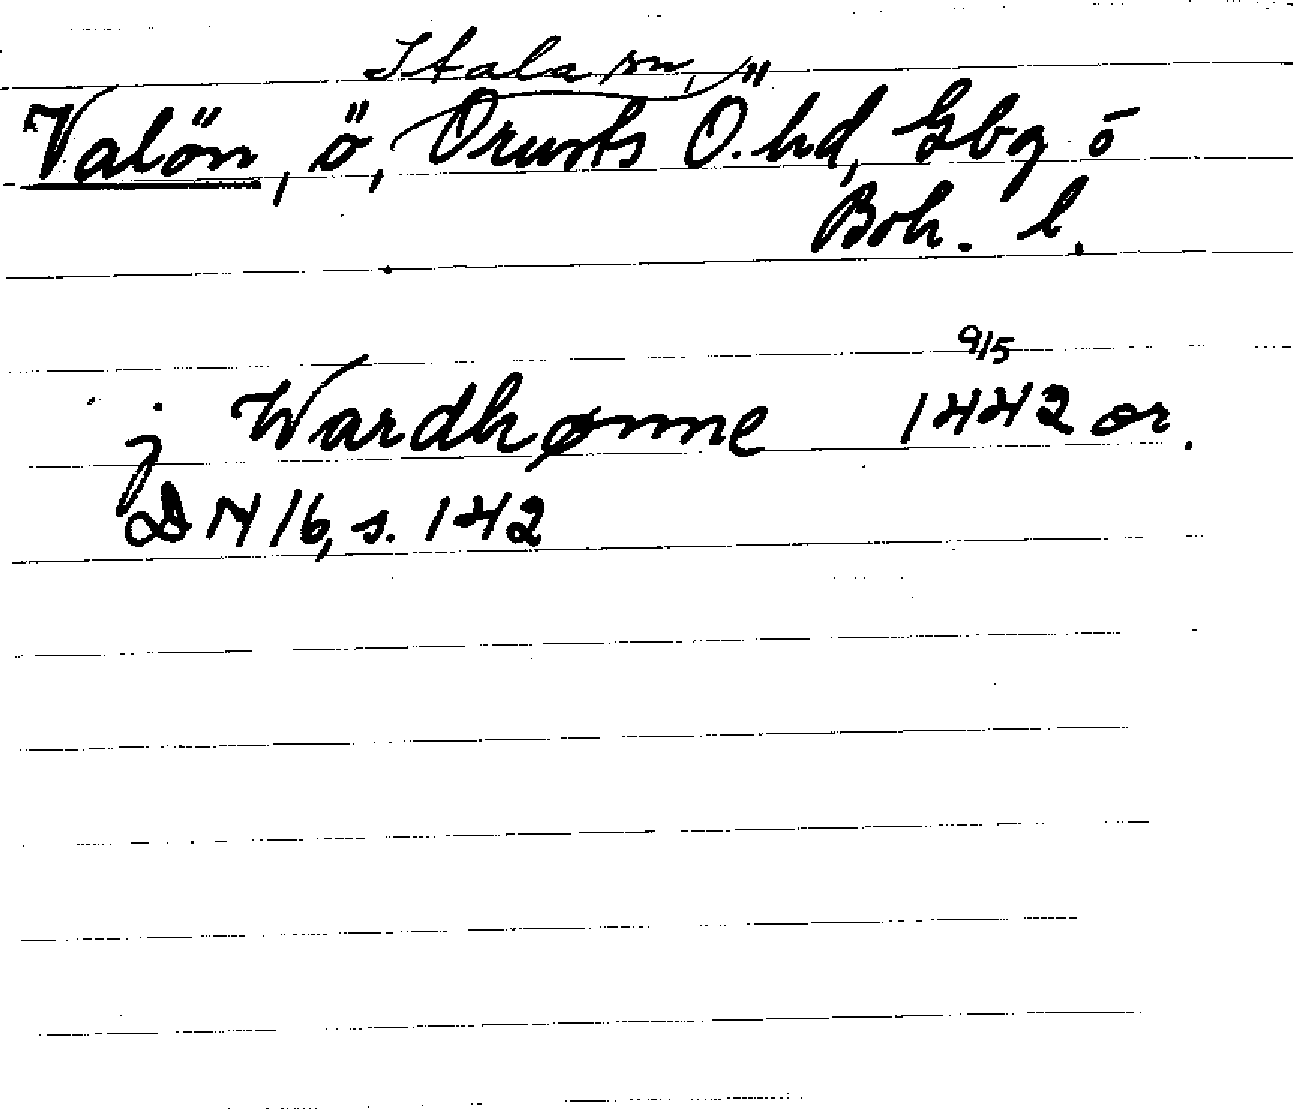 Stala sn,
Valön, ö, Orusts Ö. hd, Gbg ō
Boh. l.
9/5
j Wardhønne 1442 or.
DN 16, s. 142